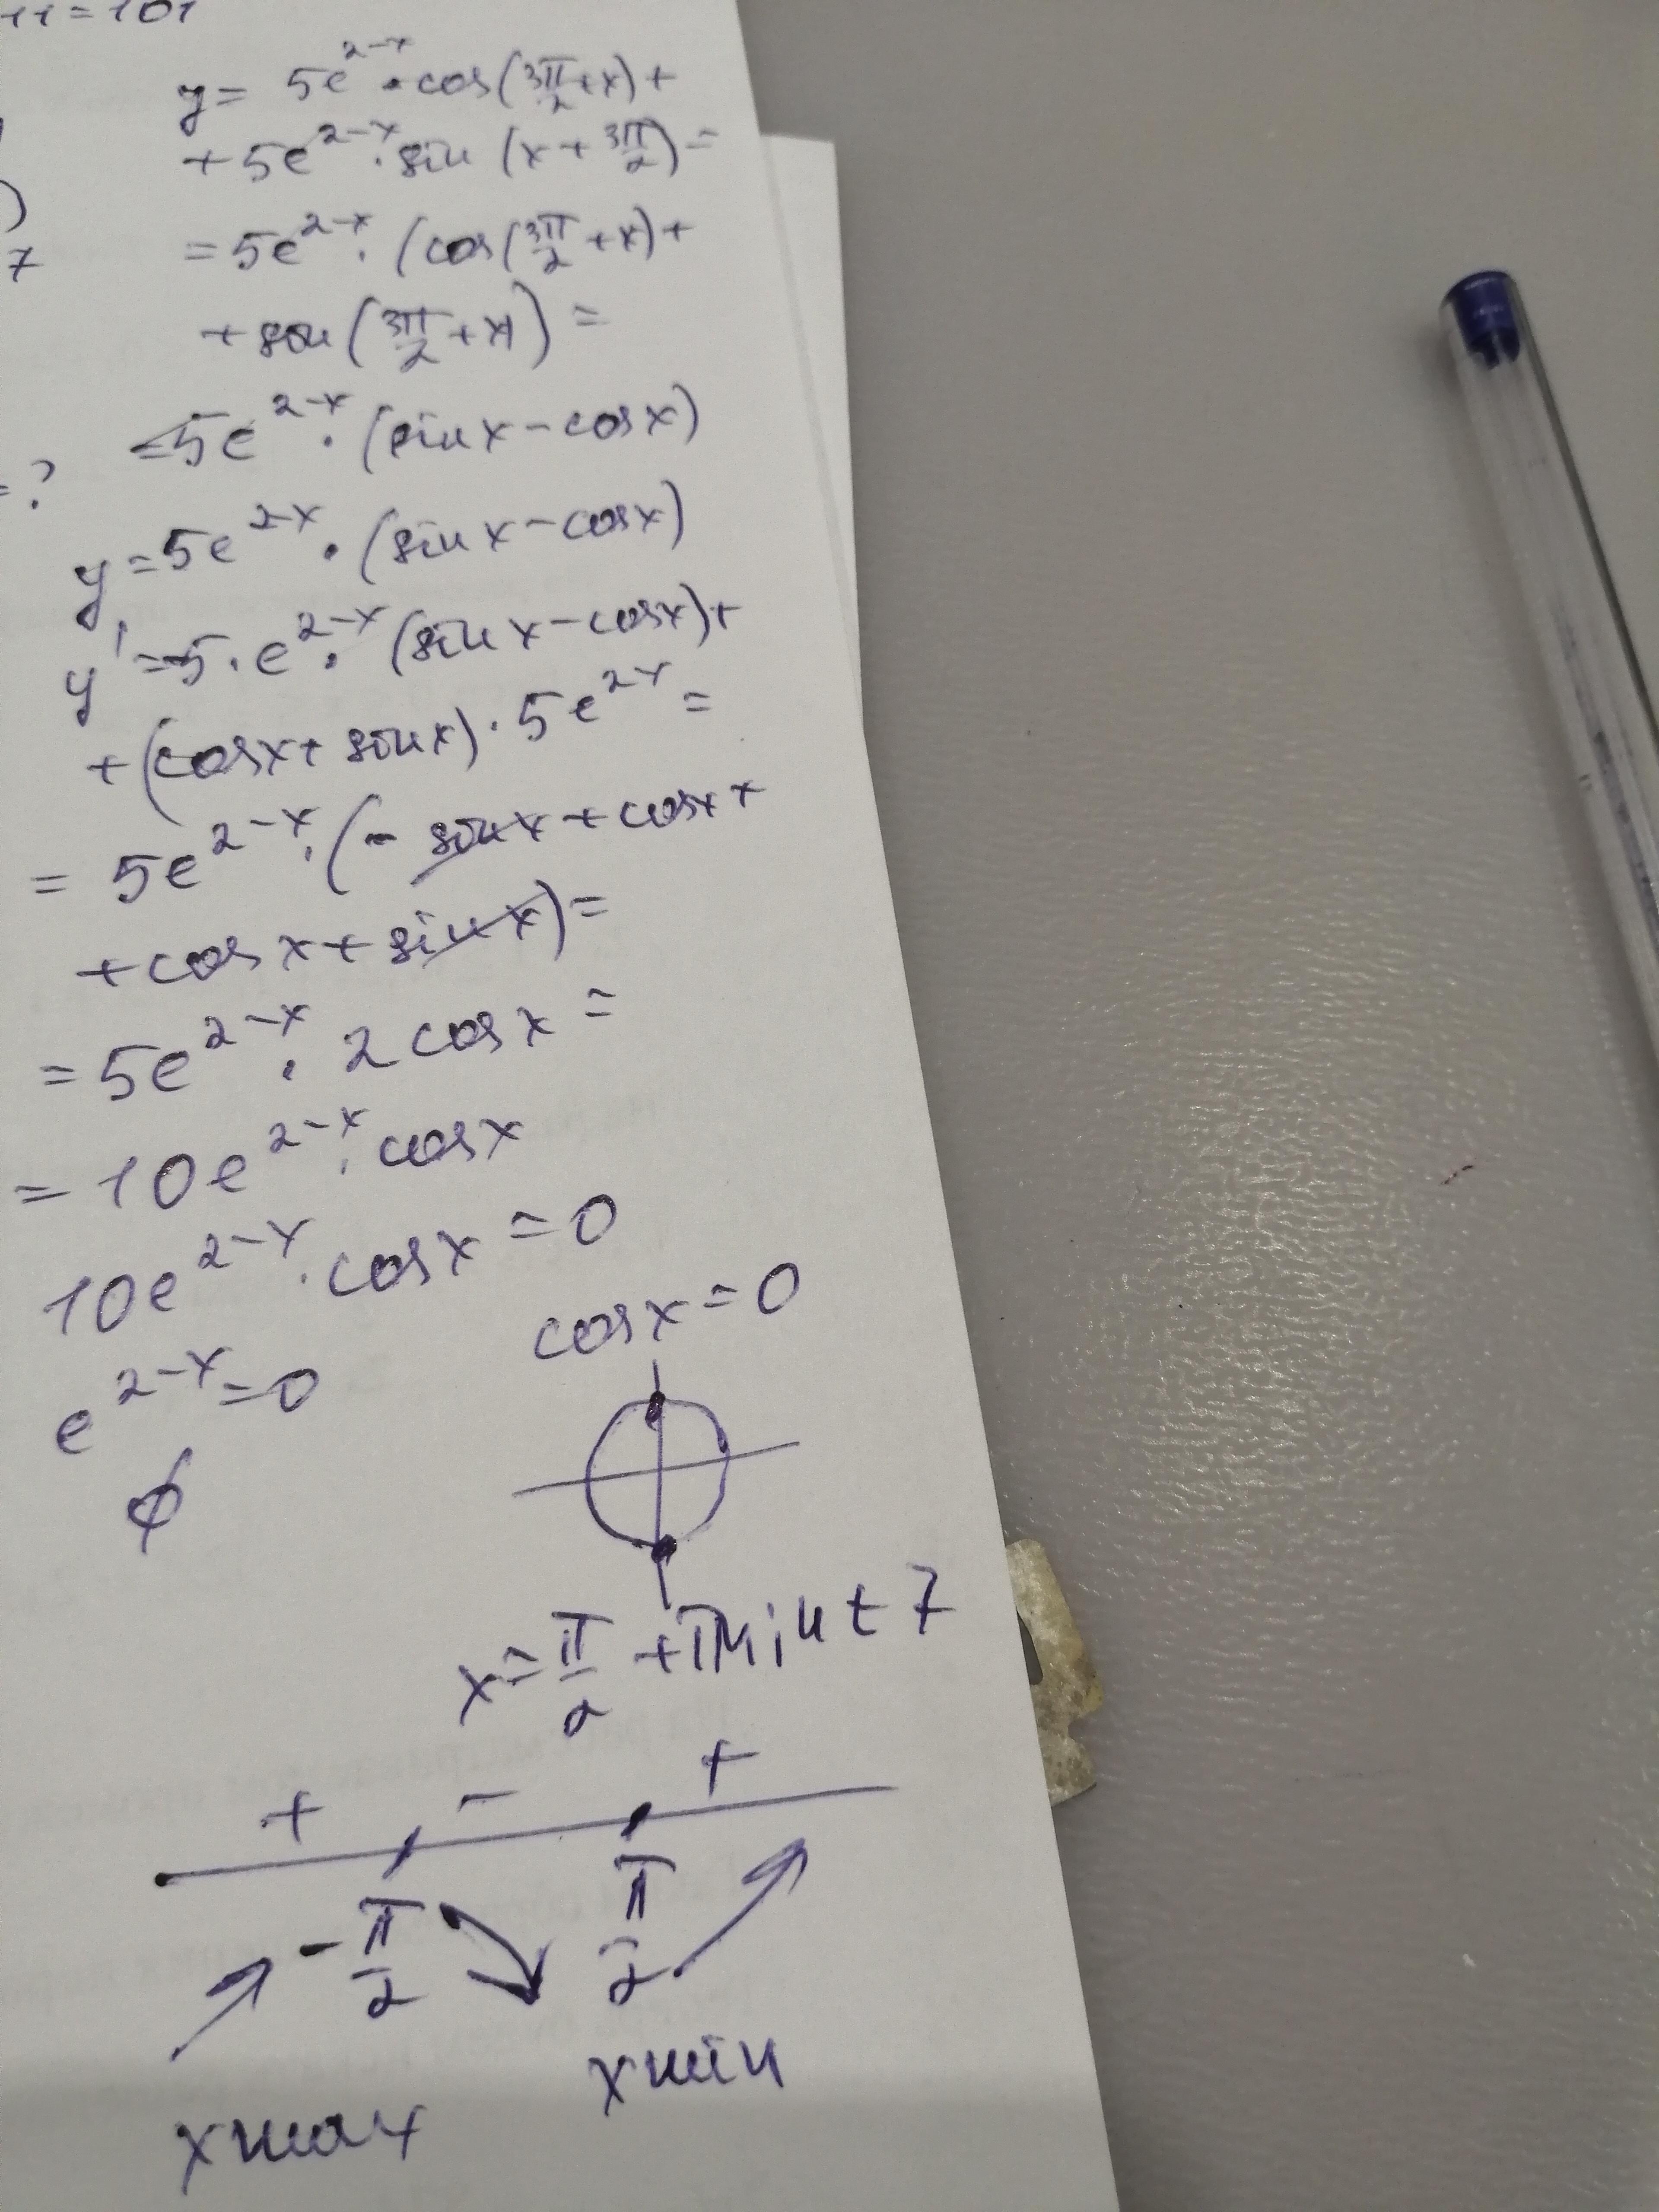 11 = 101
)
7
= ?
y = 5e^{2-x} · cos(3π/2 + x) +
+ 5e^{2-x} · sin (x + 3π/2) =
= 5e^{2-x} · (cos(3π/2 + x) +
+ sin (3π/2 + x)) =
= 5e^{2-x} · (sin x - cos x)
y = 5e^{2-x} · (sin x - cos x)
y' = -5 · e^{2-x} · (sin x - cos x) +
+ (cos x + sin x) · 5e^{2-x} =
= 5e^{2-x} · (- sin x + cos x +
+ cos x + sin x) =
= 5e^{2-x} · 2 cos x =
= 10e^{2-x} · cos x
10e^{2-x} · cos x = 0
e^{2-x} = 0 cos x = 0
∅
x = π/2 + πn; n ∈ Z
+ - +
-π/2 π/2
x max x min